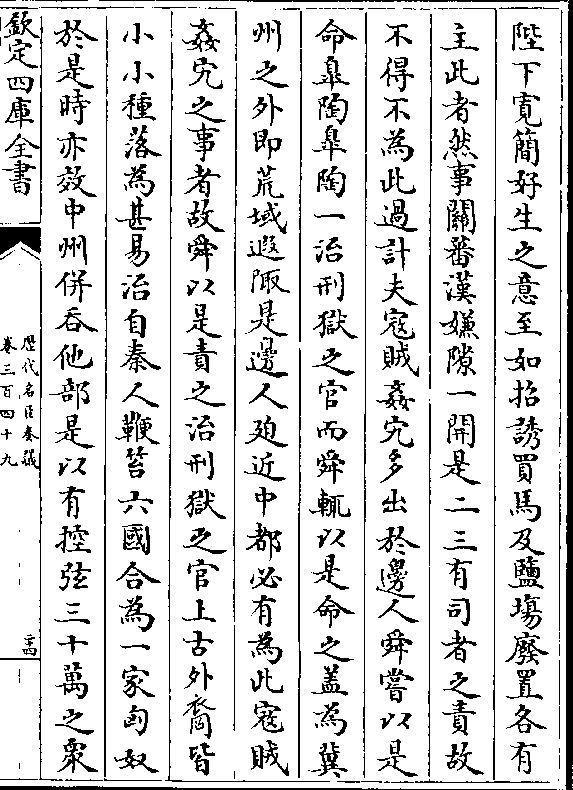 陛下寛簡好生之意至如招誘買馬及鹽場廢置各有
主此者然事關蕃漢嫌隙一開是二三有司者之責故
不得不為此過計夫宼賊姦宄多出於邊人舜嘗以是
命臯陶臯陶一治刑獄之官而舜輒以是命之蓋為冀
州之外即荒域遐陬是邊人廹近中都必有為此宼賊
姦宄之事者故舜以是責之治刑獄之官上古外裔皆
小小種落為甚易治自秦人鞭笞六國合為一家匈奴
於是時亦效中州併吞他部是以有控弦三十萬之衆
欽定四庫全書
歷代名臣奏議
卷三百四十九
二十四